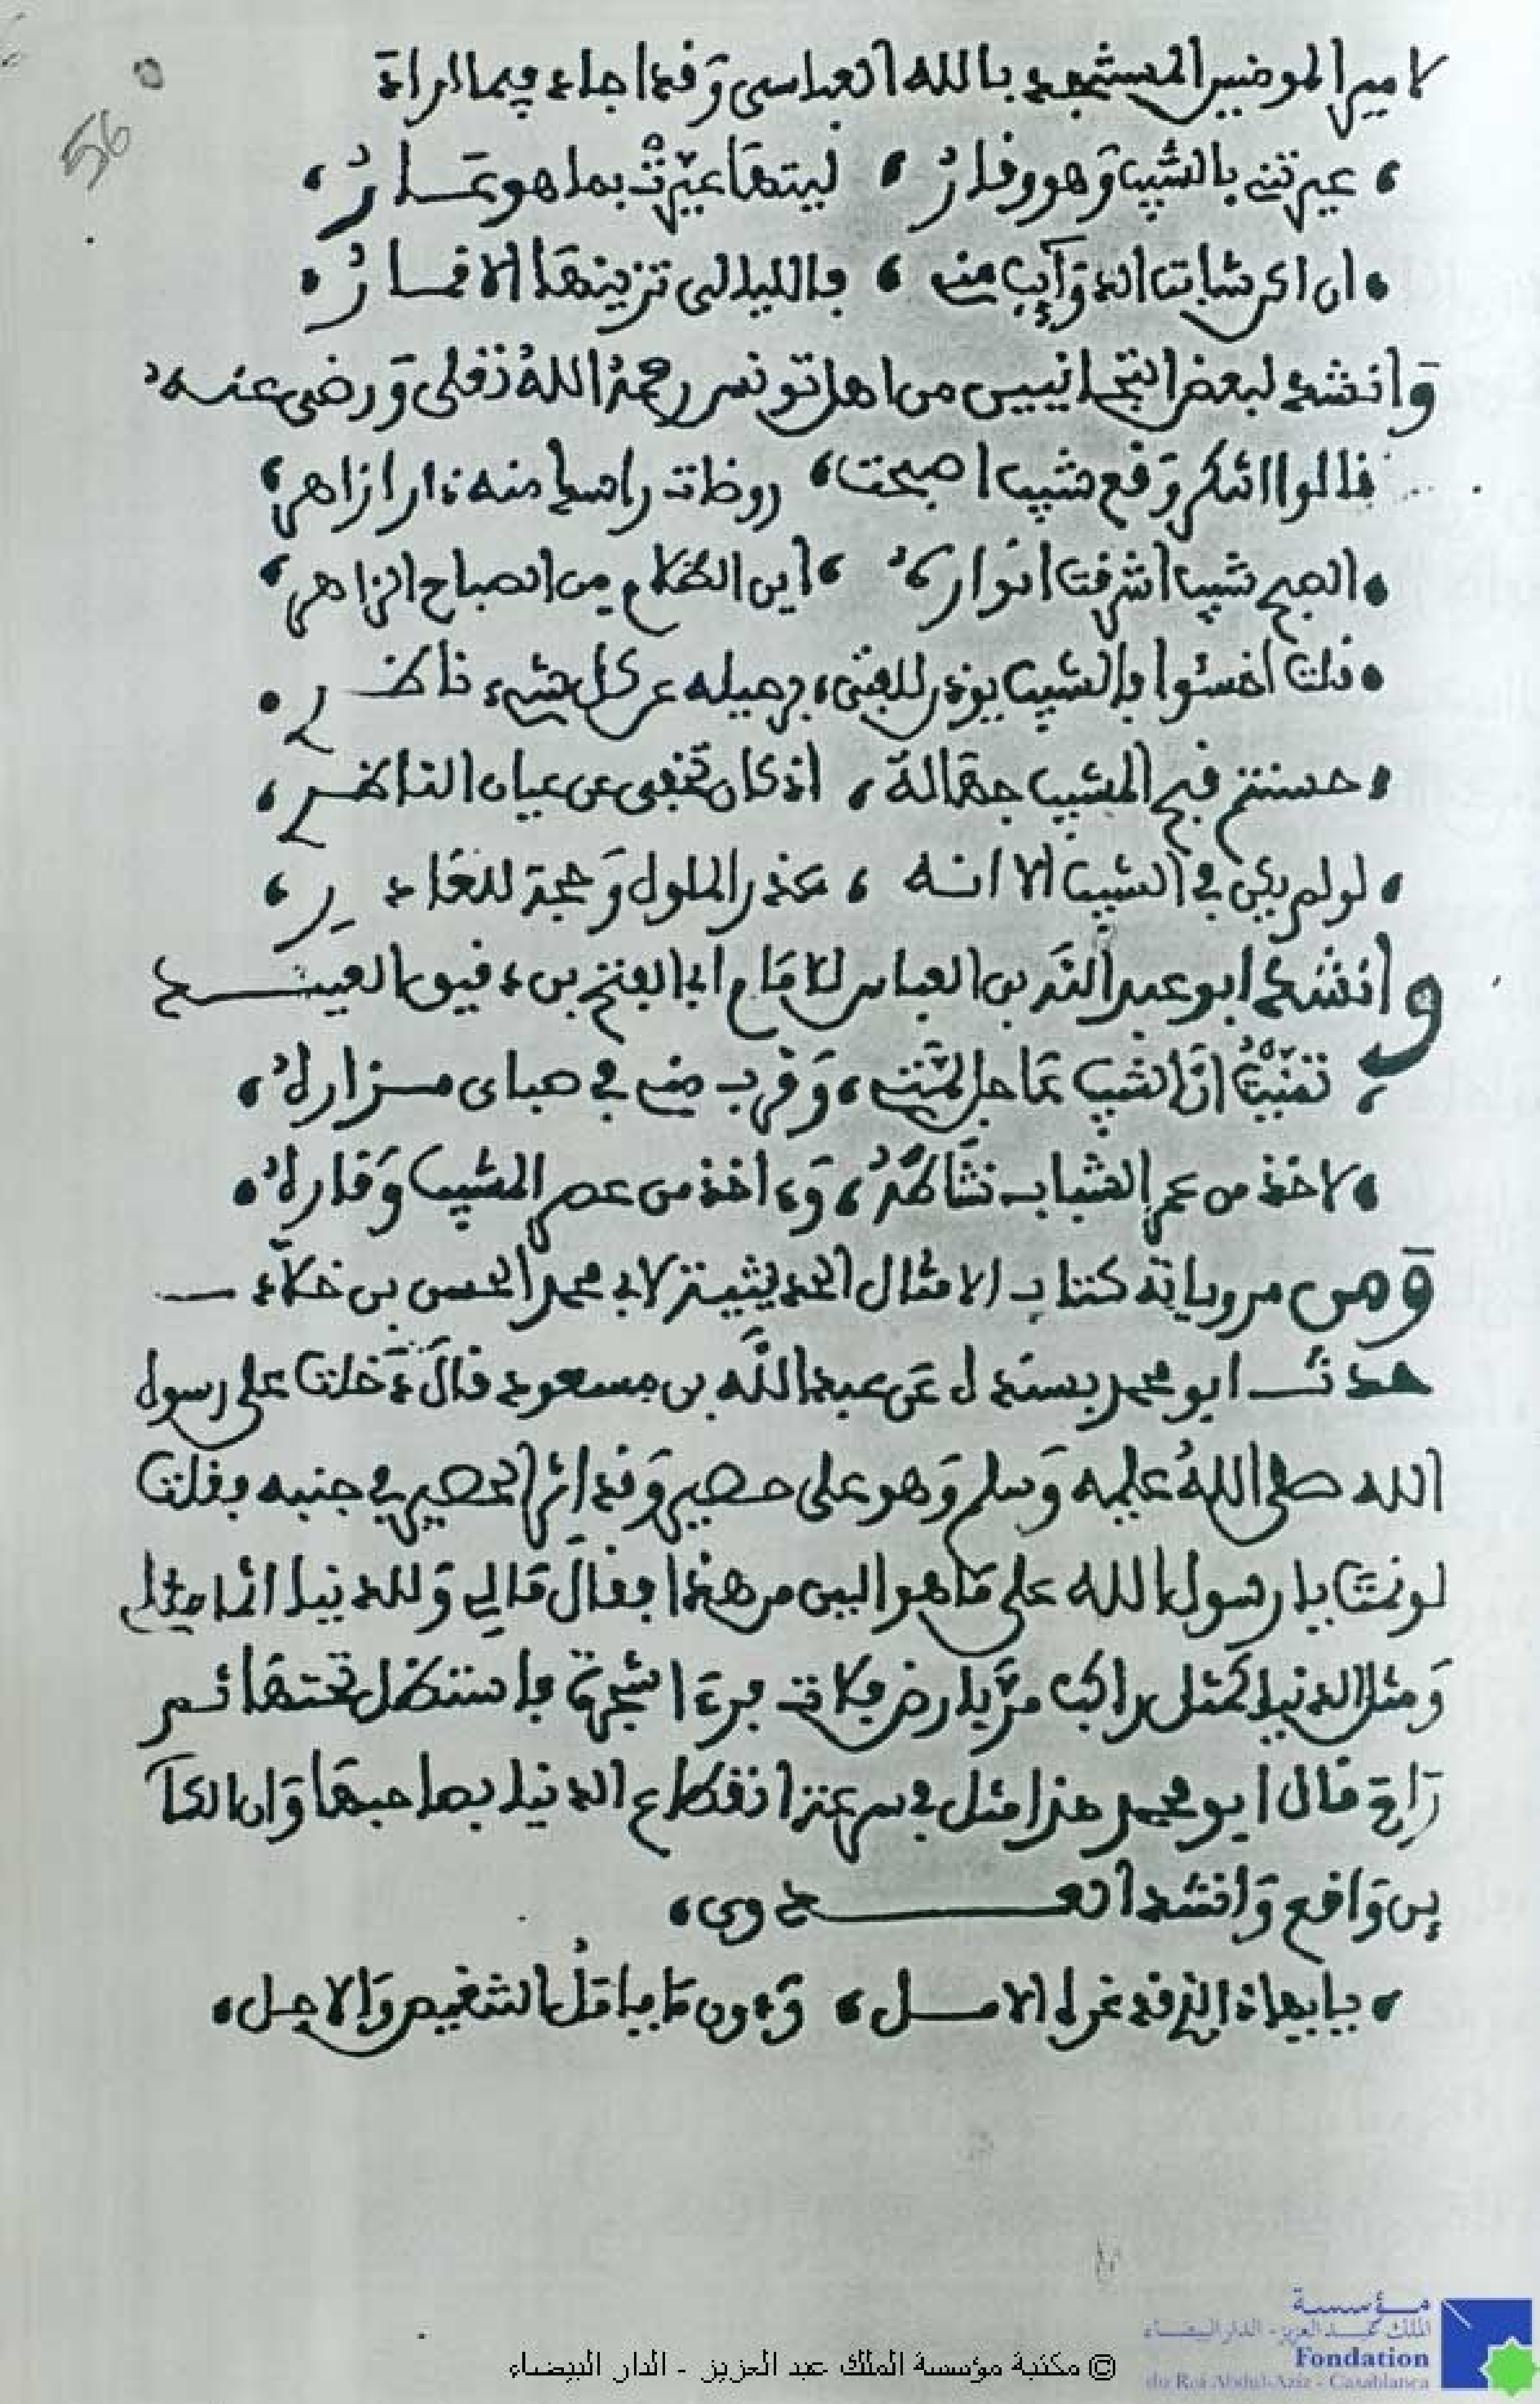 لامير المومنين المستنجد بالله العباسي وقد اجاد فيما اراد
عيرتني بالشيب وهو وقار ، ليتها عيرت بما هو عار ،
ان اكن شابت الذوآيب مني ، فالليالي تزينها الاقمار
وانشد لبعض التجانيين من اهل تونس رحمه الله تعلى ورضي عنه
قالوا اتنكر وقع شيب اصبحت ، روظات راسك منه ازاهر ،
الصبح شيب اشرقت انواره ، اين الظلام من الصباح الزاهر ،
قلت اخسئوا فالشيب يوذن للفتى ، برحيله عن كل شيء ناظر
حسنتم قبح المشيب جهالة ، اذ كان تخفى عن عيان الناظر ،
لو لم يكن في الشيب الا انه ، عذر الملول وحجة للغادر ،
وانشد ابو عبد الله بن العباس للامام ابي الفتح بن دقيق العيد
تمنيت ان الشيب عاجل لمتي ، وقرب مني في صباي مزاره ،
لاخذ من عمر الشباب نشاطه ، وءاخذ من عصر المشيب وقاره
ومن مروياته كتاب الامثال الحديثية لابي محمد الحسن بن خلاد
حدث ابو محمد بسنده عن عبد الله بن مسعود قال دخلت على رسول
الله صلى الله عليه وسلم وهو على حصير وقد اثر الحصير في جنبه فقلت
لو نمت يا رسول الله على ما هو الين من هذا فقال مالي وللدنيا انما مثلي
ومثل الدنيا كمثل راكب مر بارض فلاة فرءا شجرة فاستظل تحتها ثم
راح قال ابو محمد هذا مثل في سرعة انقطاع الدنيا بصاحبها وان الكآ
ين واقع وانشد العدوي ،
يايهاذا الذي قد غره الامل ، ودون ما يامل التنغيص والاجل ،
56
© مكتبة مؤسسة الملك عبد العزيز - الدار البيضاء
مؤسسة
الملك عبد العزيز - الدار البيضاء
Fondation
du Roi Abdul-Aziz - Casablanca